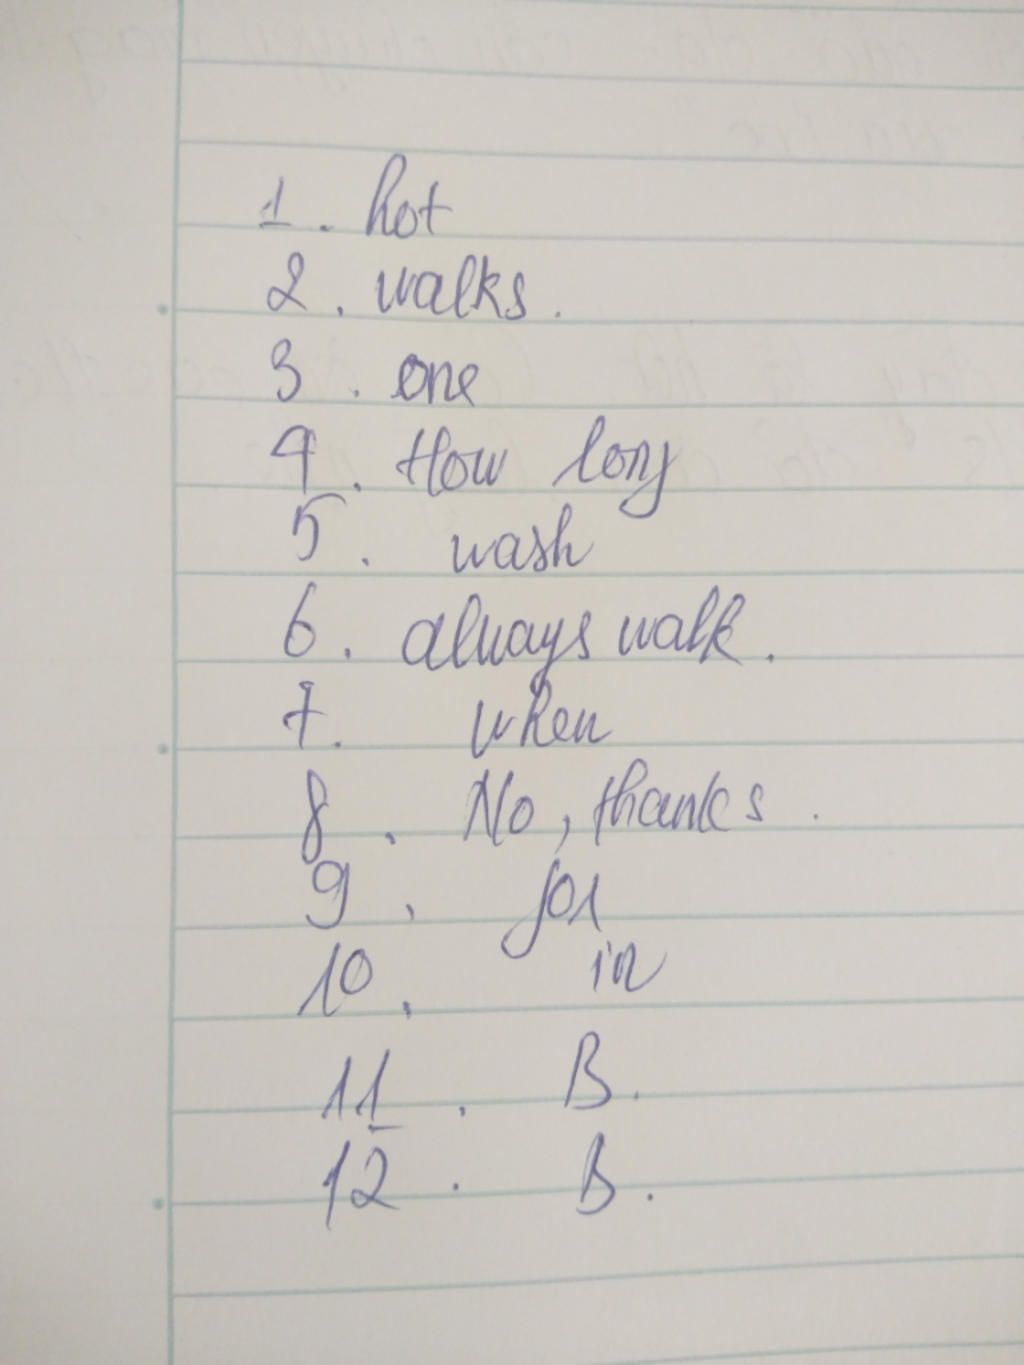 1. hot
2. walks.
3. one
4. How long
5. wash
6. always walk.
7. when
8. No, thanks.
9. for
10. in
11. B.
12. B.